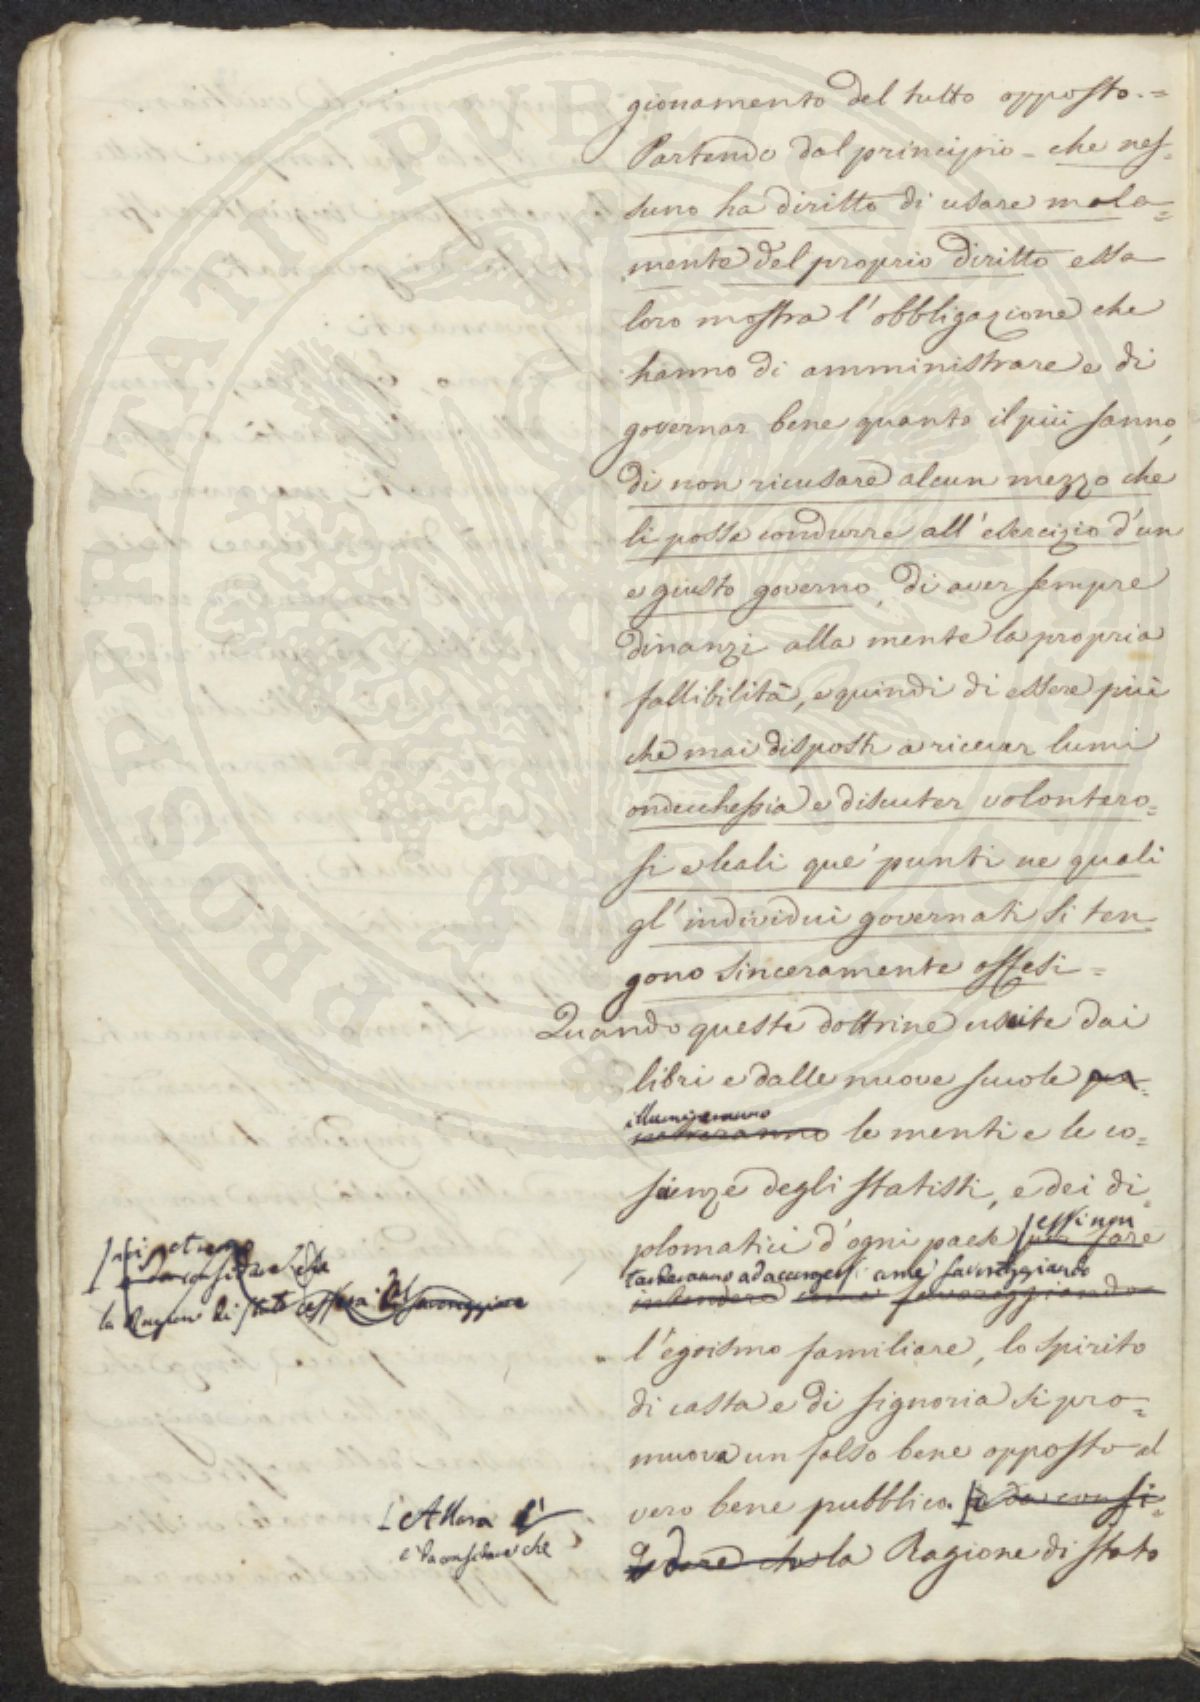 gionamento del tutto opposto.=
Partendo dal principio - che nes-
suno ha diritto di usare mala=
mente del proprio diritto essa
loro mostra l'obbligazione che
hanno di amministrare e di
governar bene quanto il più sanno,
di non ricusare alcun mezzo che
li possa condurre all'esercizio d'un
e giusto governo, di aver sempre
dinanzi alla mente la propria
fallibilità, e quindi di essere più
che mai disposti a ricever lumi
ondecchessia e discuter volontero=
si e leali que' punti ne quali
gl'individui governati si ten
gono sinceramente offesi =
Quando queste dottrine uscite dai
libri e dalle nuove scuole
illumineranno
le menti e le co=
sienze degli statisti, e dei di=
plomatici d'ogni paese essi non
tarderanno ad accorgersi come favoreggiando
intendere come favoreggiando
l'egoismo familiare, lo spirito
di casta e di signoria si pro=
muova un falso bene opposto al
vero bene pubblico. è da consi=
derare che la Ragione di stato
la Ragione di stato favoreggiare
Allora
è da considerare che
PROSPERITATI PUBLICAE